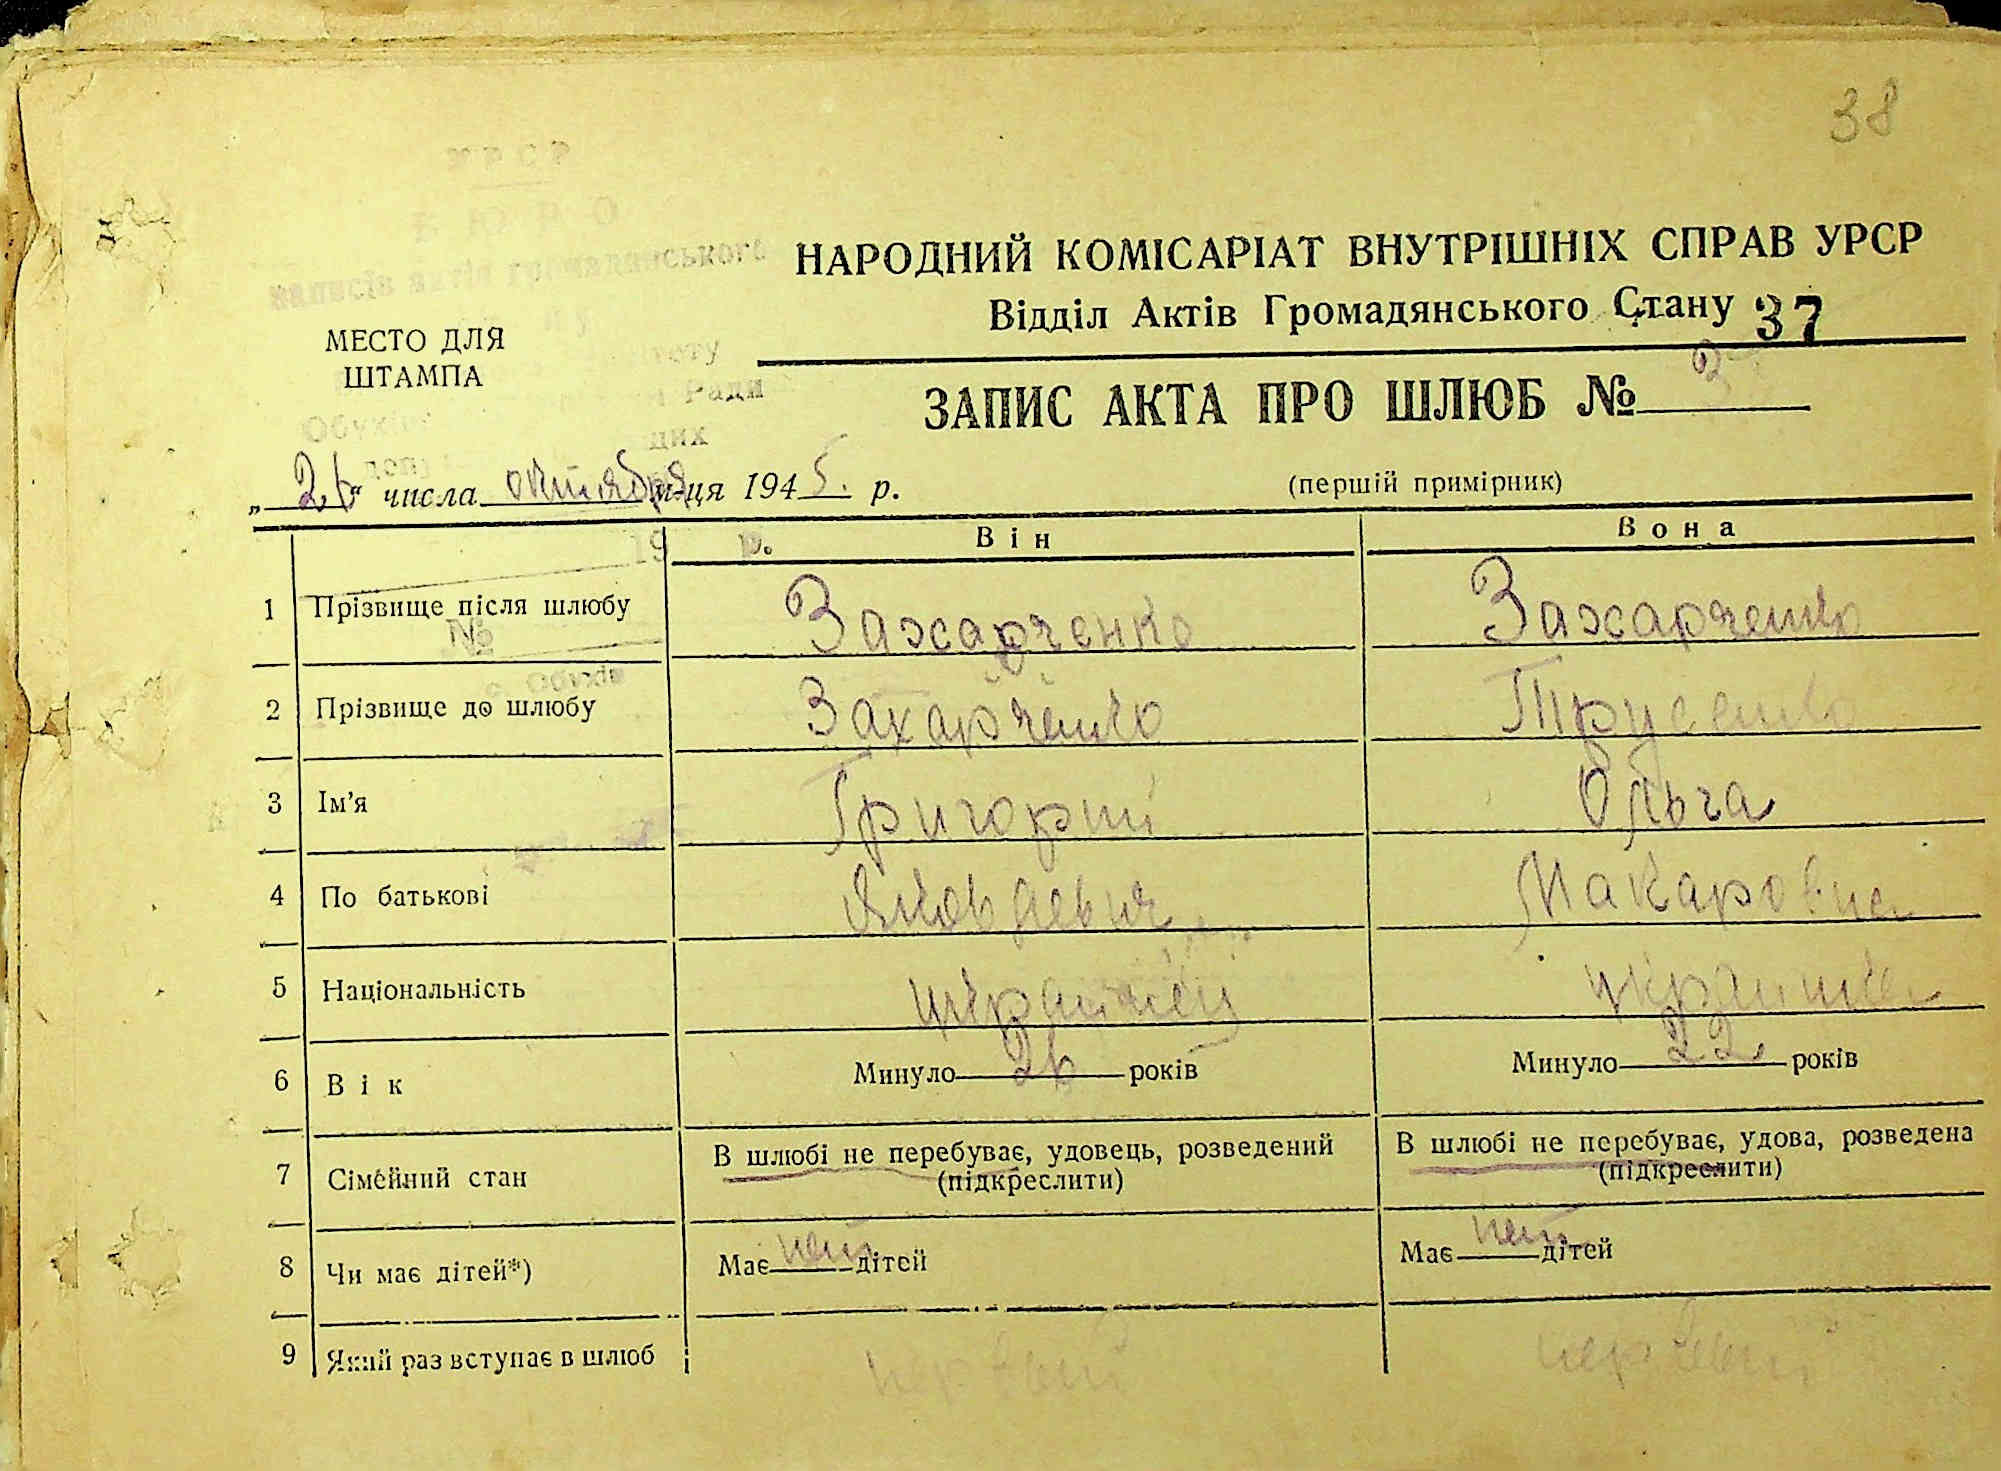 38
УРСР
БЮРО
записів актів громадянського
НАРОДНИЙ КОМІСАРІАТ ВНУТРІШНІХ СПРАВ УРСР
Відділ Актів Громадянського Стану 37
МЕСТО ДЛЯ
ШТАМПА
Ради
ЗАПИС АКТА ПРО ШЛЮБ №
„26“ числа октября м-ця 1945. р.
(першій примірник)
19 р.
Він
Вона
1 Прізвище після шлюбу Захарченко Захарченко
№
с. Обухів
2 Прізвище до шлюбу Захарченко Трусенко
3 Ім'я Григорий Ольга
4 По батькові Яковлевич Макаровна
5 Національність украинец украинка
6 Вік Минуло 26 років Минуло 22 років
7 Сімейний стан В шлюбі не перебуває, удовець, розведений (підкреслити) В шлюбі не перебуває, удова, розведена (підкреслити)
8 Чи має дітей*) Має нет дітей Має нет дітей
9 Який раз вступає в шлюб первый первый